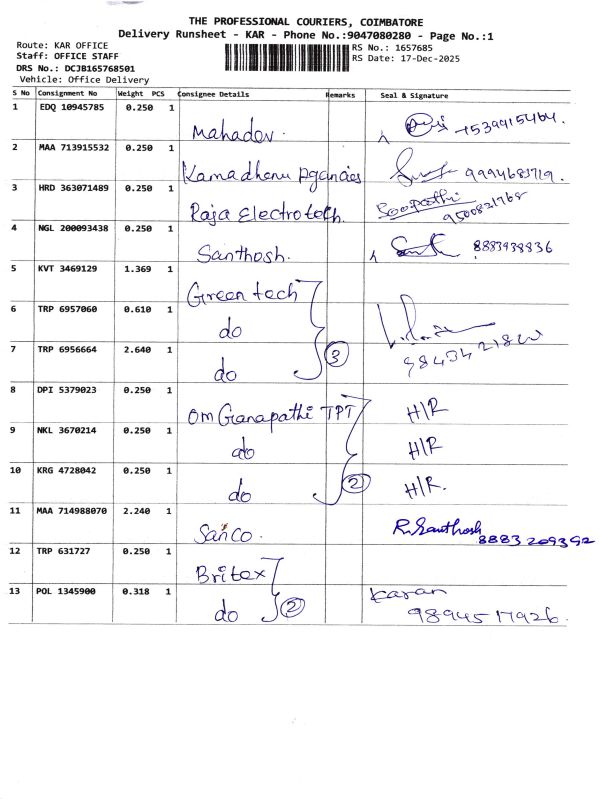 THE PROFESSIONAL COURIERS, COIMBATORE
Delivery Runsheet - KAR - Phone No.:9047080280 - Page No.:1
Route: KAR OFFICE RS No.: 1657685
Staff: OFFICE STAFF RS Date: 17-Dec-2025
DRS No.: DCJB165768501
Vehicle: Office Delivery
S No Consignment No Weight PCS Consignee Details Remarks Seal & Signature
1 EDQ 10945785 0.250 1 Mahadev. 7539915464.
2 MAA 713915532 0.250 1 Kamadhenu Agencies 9994683719.
3 HRD 363071489 0.250 1 Raja Electrotech. Boopathi
9500831768
4 NGL 200093438 0.250 1 Santhosh. 8883938836
5 KVT 3469129 1.369 1 Green tech
6 TRP 6957060 0.610 1 do
7 TRP 6956664 2.640 1 do 3
8 DPI 5379023 0.250 1 Om Ganapathi TPT H/R
9 NKL 3670214 0.250 1 do H/R
10 KRG 4728042 0.250 1 do 2 H/R.
11 MAA 714988070 2.240 1 Sanco. R. Santhosh
8883209392
12 TRP 631727 0.250 1 Britex
13 POL 1345900 0.318 1 do 2 Karan
9894517926.